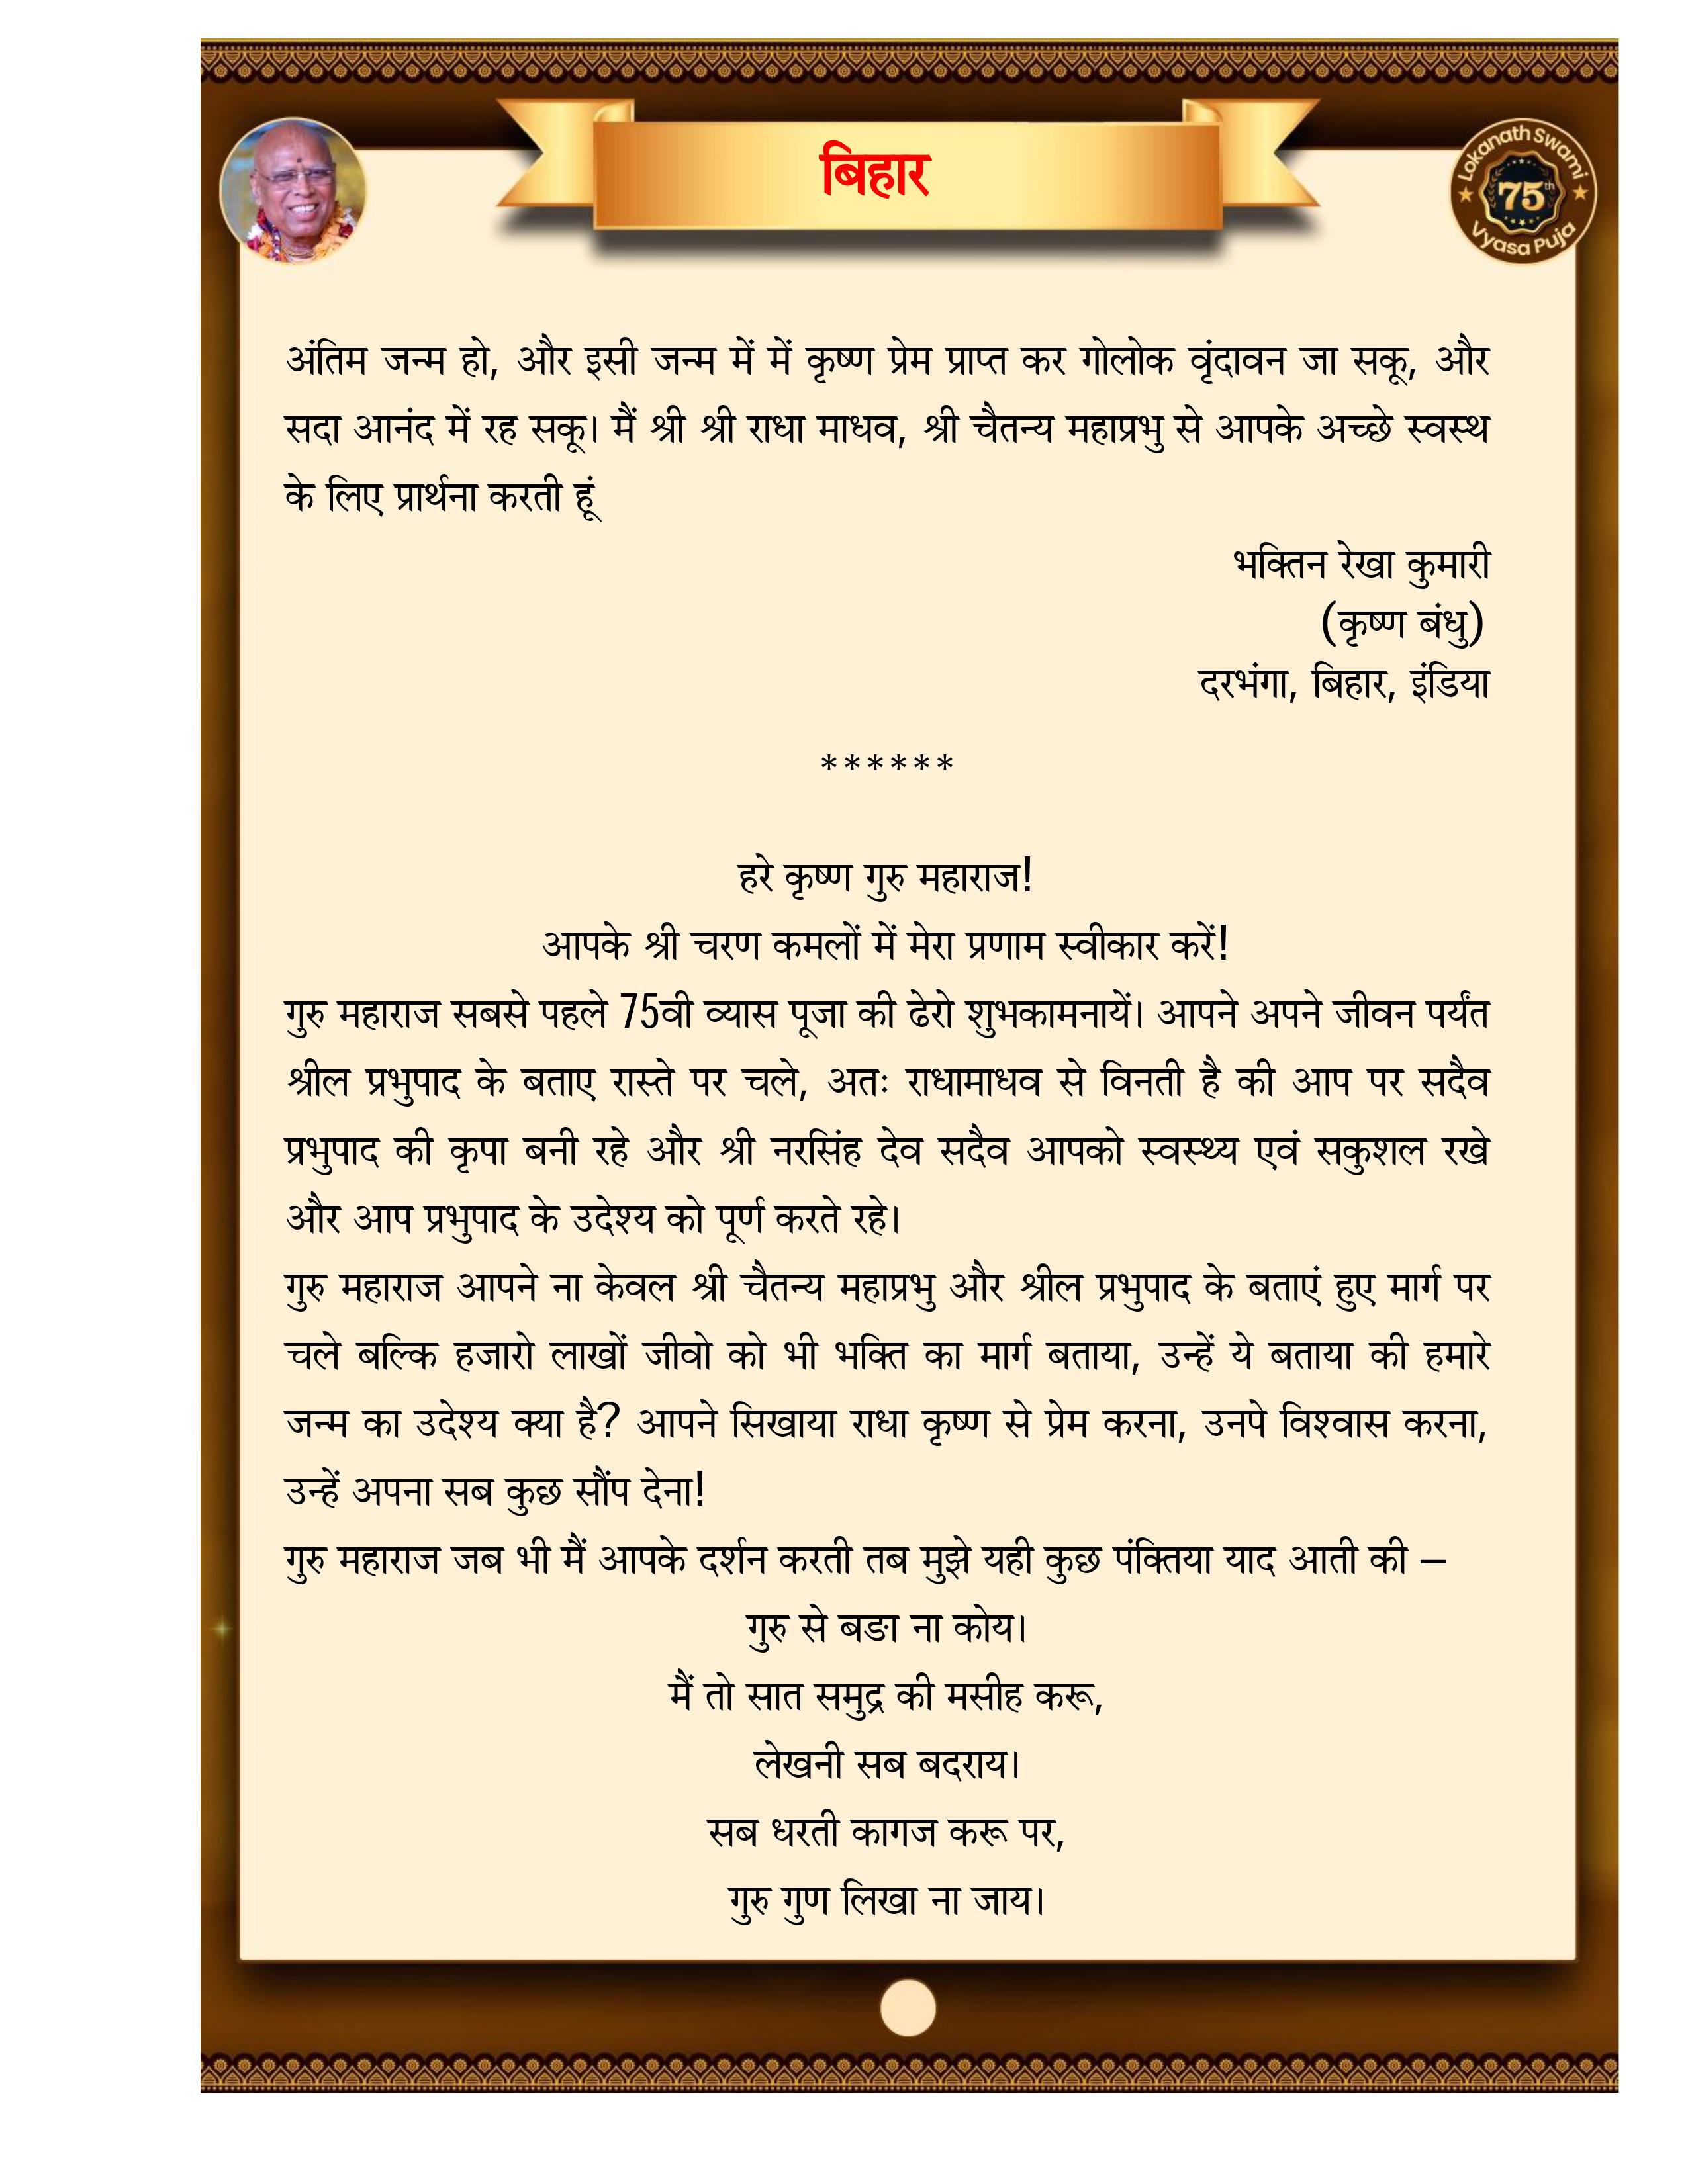 बिहार
Lokanath Swami
75th
Vyasa Puja
अंतिम जन्म हो, और इसी जन्म में में कृष्ण प्रेम प्राप्त कर गोलोक वृंदावन जा सकू, और
सदा आनंद में रह सकू। मैं श्री श्री राधा माधव, श्री चैतन्य महाप्रभु से आपके अच्छे स्वस्थ
के लिए प्रार्थना करती हूं
भक्तिन रेखा कुमारी
(कृष्ण बंधु)
दरभंगा, बिहार, इंडिया
******
हरे कृष्ण गुरु महाराज!
आपके श्री चरण कमलों में मेरा प्रणाम स्वीकार करें!
गुरु महाराज सबसे पहले 75वी व्यास पूजा की ढेरो शुभकामनायें। आपने अपने जीवन पर्यंत
श्रील प्रभुपाद के बताए रास्ते पर चले, अतः राधामाधव से विनती है की आप पर सदैव
प्रभुपाद की कृपा बनी रहे और श्री नरसिंह देव सदैव आपको स्वस्थ्य एवं सकुशल रखे
और आप प्रभुपाद के उदेश्य को पूर्ण करते रहे।
गुरु महाराज आपने ना केवल श्री चैतन्य महाप्रभु और श्रील प्रभुपाद के बताएं हुए मार्ग पर
चले बल्कि हजारो लाखों जीवो को भी भक्ति का मार्ग बताया, उन्हें ये बताया की हमारे
जन्म का उदेश्य क्या है? आपने सिखाया राधा कृष्ण से प्रेम करना, उनपे विश्वास करना,
उन्हें अपना सब कुछ सौंप देना!
गुरु महाराज जब भी मैं आपके दर्शन करती तब मुझे यही कुछ पंक्तिया याद आती की –
गुरु से बङा ना कोय।
मैं तो सात समुद्र की मसीह करू,
लेखनी सब बदराय।
सब धरती कागज करू पर,
गुरु गुण लिखा ना जाय।